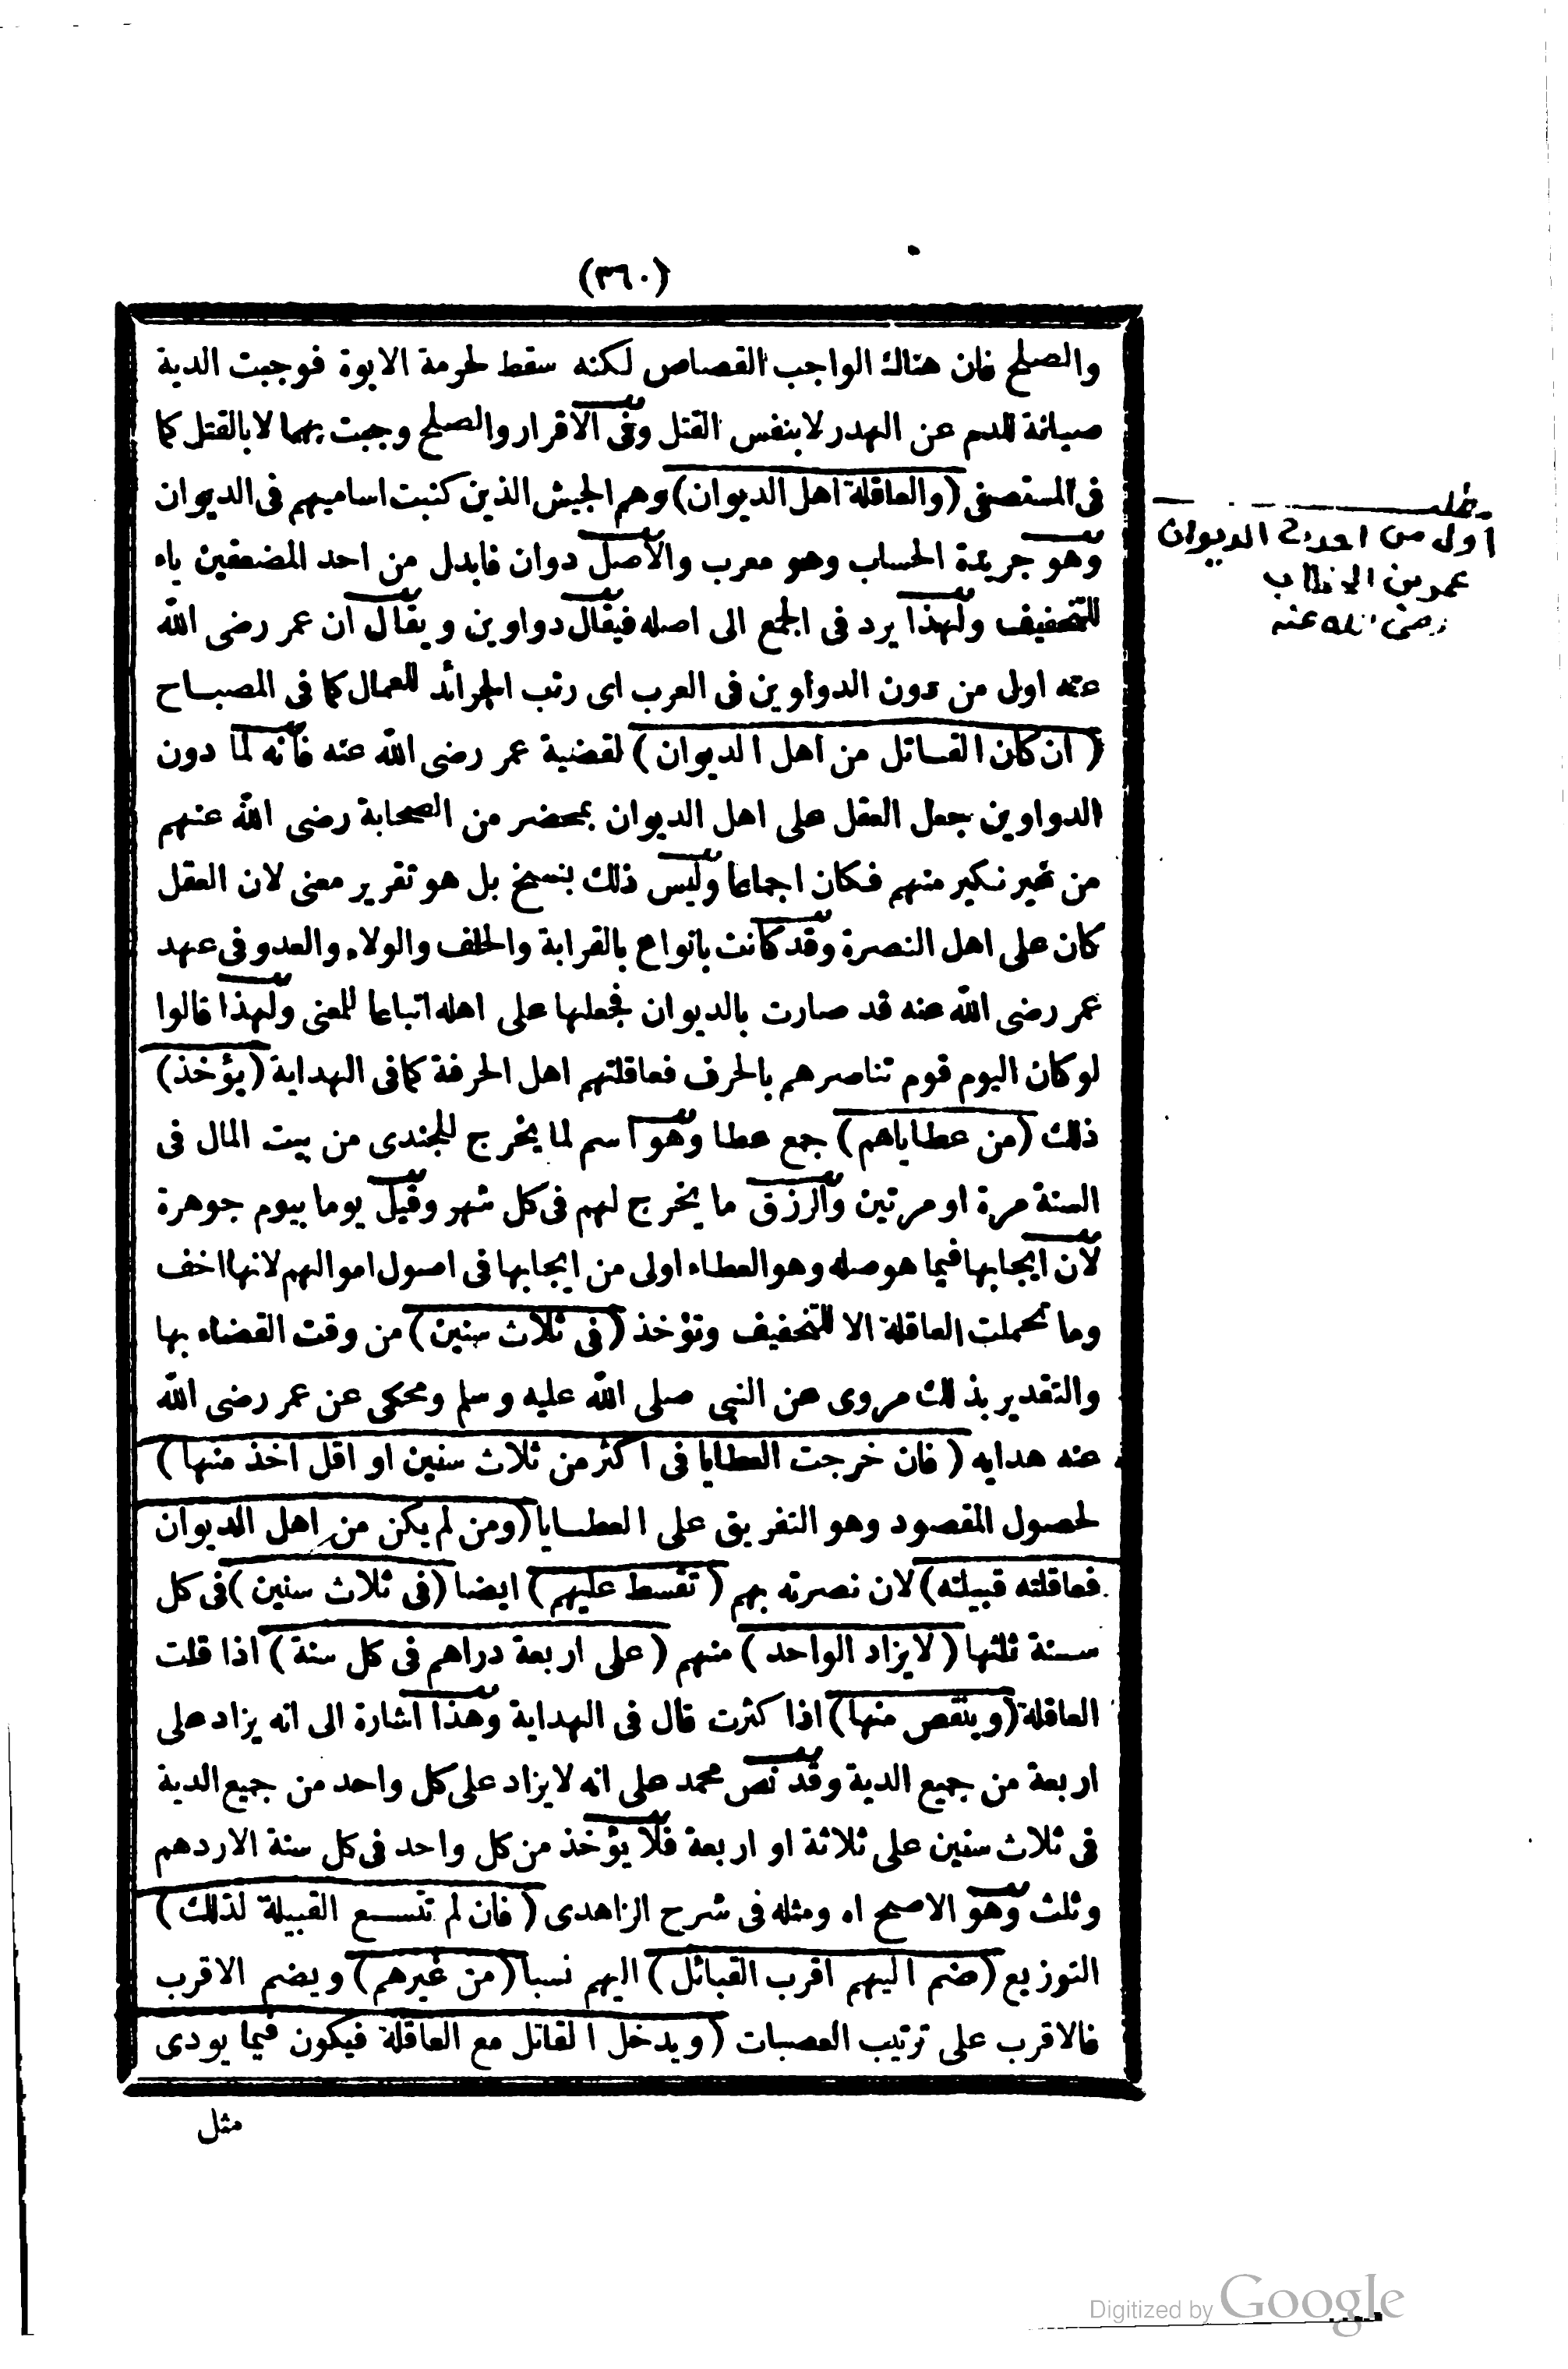 (٣٦٠)
والصلح فان هناك الواجب القصاص لكنه سقط لحرمة الابوة فوجبت الدية
صيانة للدم عن الهدر لا بنفس القتل وفى الاقرار والصلح وجبت بهما لا بالقتل كما
فى المستصفى (والعاقلة اهل الديوان) وهم الجيش الذين كتبت اساميهم فى الديوان
وهو جريدة الحساب وهو معرب والاصل دوان فابدل من احد المضعفين ياء
للتخفيف ولهذا يرد فى الجمع الى اصله فيقال دواوين ويقال ان عمر رضى الله
عنه اول من دون الدواوين فى العرب اى رتب الجرائد للعمال كما فى المصباح
(ان كان القاتل من اهل الديوان) لقضية عمر رضى الله عنه فانه لما دون
الدواوين جعل العقل على اهل الديوان بمحضر من الصحابة رضى الله عنهم
من غير نكير منهم فكان اجماعا وليس ذلك بنسخ بل هو تقرير معنى لان العقل
كان على اهل النصرة وقد كانت بانواع بالقرابة والحلف والولاء والعدو فى عهد
عمر رضى الله عنه قد صارت بالديوان فجعلها على اهله اتباعا للمعنى ولهذا قالوا
لو كان اليوم قوم تناصرهم بالحرف فعاقلتهم اهل الحرفة كما فى الهداية (يؤخذ)
ذلك (من عطاياهم) جمع عطا وهو اسم لما يخرج للجندى من بيت المال فى
السنة مرة او مرتين والرزق ما يخرج لهم فى كل شهر وقيل يوما بيوم جوهرة
لان ايجابها فيما هو صله وهو العطاء اولى من ايجابها فى اصول اموالهم لانها اخف
وما تحملت العاقلة الا للتخفيف وتؤخذ (فى ثلاث سنين) من وقت القضاء بها
والتقدير بذلك مروى عن النبى صلى الله عليه وسلم ومحكى عن عمر رضى الله
عنه هدايه (فان خرجت العطايا فى اكثر من ثلاث سنين او اقل اخذ منها)
لحصول المقصود وهو التفريق على العطايا (ومن لم يكن من اهل الديوان
فعاقلته قبيلته) لان نصرته بهم (تقسط عليهم) ايضا (فى ثلاث سنين) فى كل
سنة ثلثها (لايزاد الواحد) منهم (على اربعة دراهم فى كل سنة) اذا قلت
العاقلة (وينقص منها) اذا كثرت قال فى الهداية وهذا اشارة الى انه يزاد على
اربعة من جميع الدية وقد نص محمد على انه لايزاد على كل واحد من جميع الدية
فى ثلاث سنين على ثلاثة او اربعة فلا يؤخذ من كل واحد فى كل سنة الا درهم
وثلث وهو الاصح اه ومثله فى شرح الزاهدى (فان لم تتسع القبيلة لذلك)
التوزيع (ضم اليهم اقرب القبائل) اليهم نسبا (من غيرهم) ويضم الاقرب
فالاقرب على ترتيب العصبات (ويدخل القاتل مع العاقلة فيكون فيما يودى
مثل
مطلب
اول من احدث الديوان
عمر بن الخطاب
رضى الله عنه
Digitized by Google